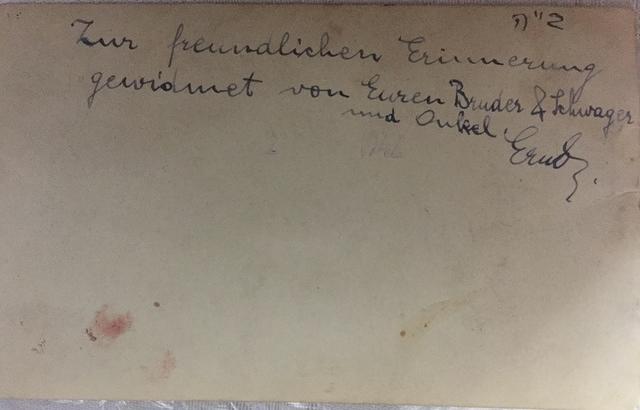 Zur freundlichen Erinnerung
gewidmet von Euren Bruder & Schwager
und Onkel.
Ernst.